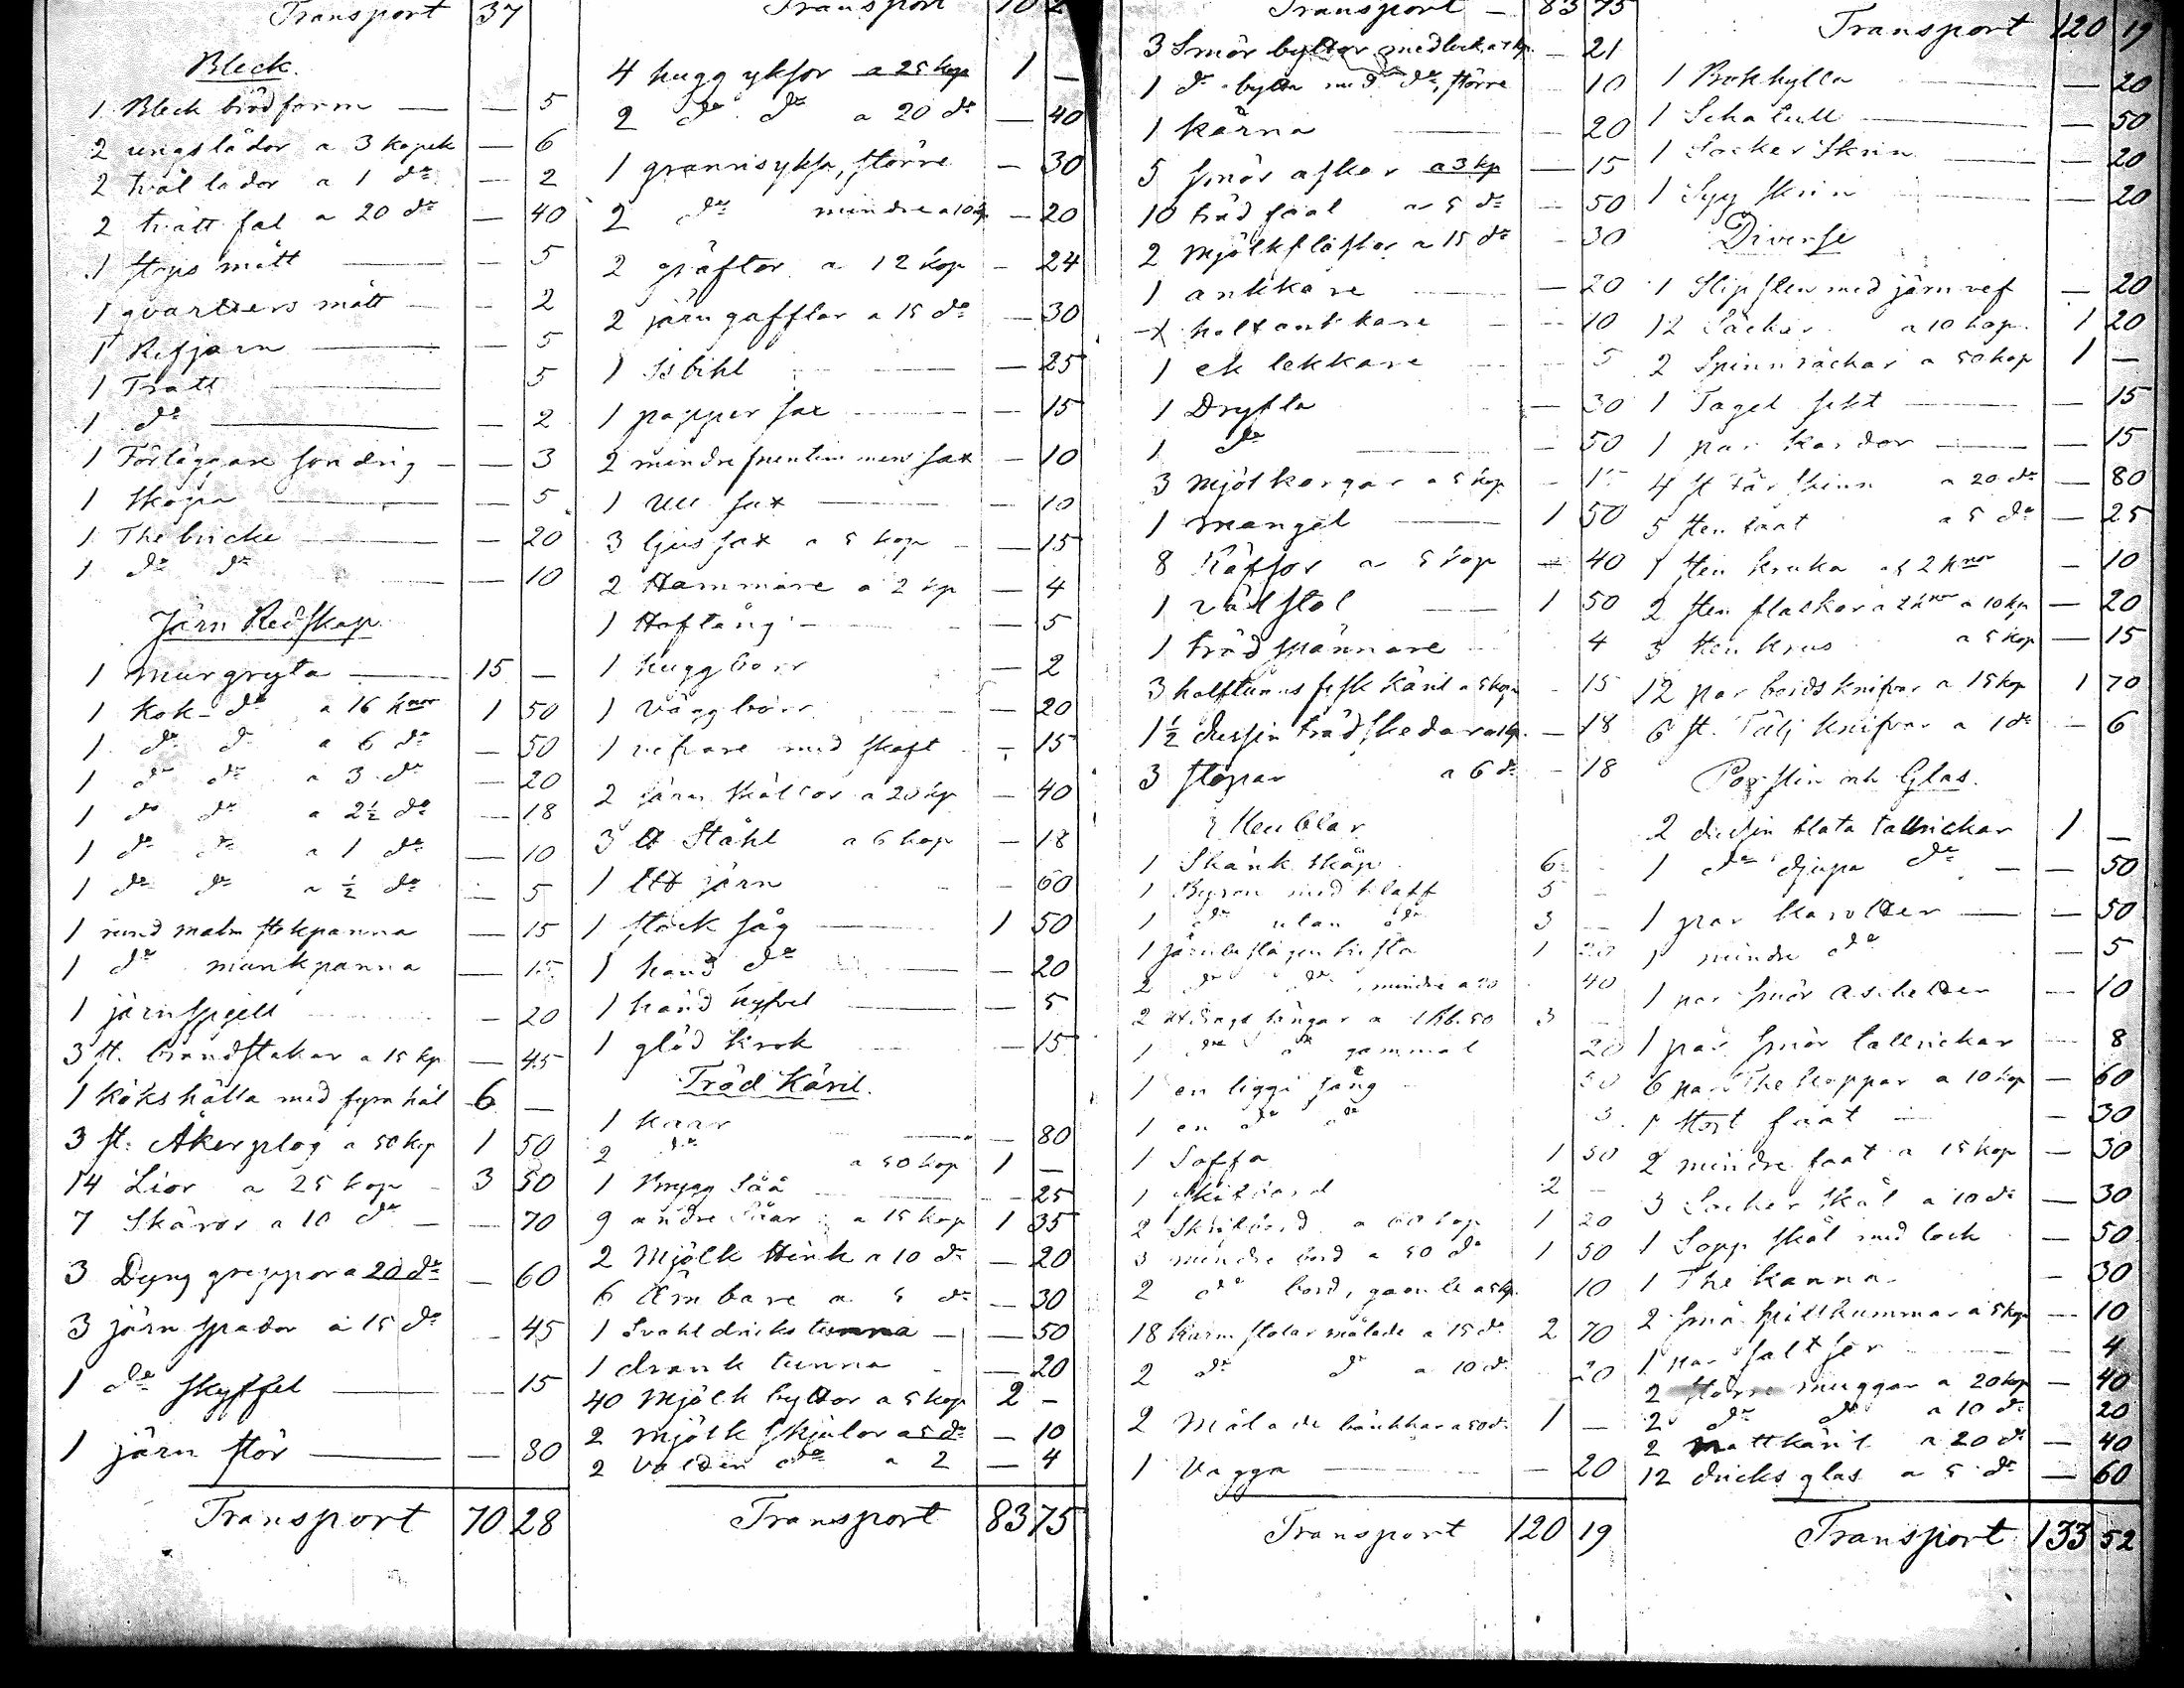 Transport 37
Bleck.
1 Bleck brödform — — 5
2 ungslådor a 3 kopek — 6
2 tvål lådor a 1 do — 2
2 tvätt fat a 20 do — 40
1 stops mått — — 5
1 qvarters mått — — 2
1 Refjärn — — 5
1 Tratt — 5
1 do — — 2
1 Förläggare söndrig — — 3
1 Skopa — — 5
1 The bricke — — 20
1 do do — 10
Järn Redskap
1 murgryta — 15 —
1 Kok- do a 16 knor 1 50
1 do do a 6 do — 50
1 do do a 3 do — 20
1 do do a 2½ do — 18
1 do do a 1 do — 10
1 do do a ½ do — 5
1 rund malm stekpanna — 15
1 do munkpanna — 15
1 järnspjell — 20
3 st. brandstakar a 15 kp — 45
1 kökshälla med fyra hål 6 —
3 st. Åkerplog a 50 kop 1 50
14 Lior a 25 kop 3 50
7 Skäror a 10 do — 70
3 Dyng greppor a 20 do — 60
3 järn spador a 15 do — 45
1 do skyffel — — 15
1 järn stör — — 80
Transport 70 28
Transport 70 2
4 hugg yksor a 25 kop 1 —
2 do do a 20 do — 40
1 grannsyksa, större — 30
2 do mindre a 10 kp — 20
2 gräftor a 12 kop — 24
2 järn gafflor a 15 do — 30
1 Isbihl — 25
1 papper sax — — 15
2 mindre fruntimmers sax — 10
1 Ull sax — — 10
3 ljus sax a 5 kop — 15
2 Hammare a 2 kp — 4
1 Hoftång — — 5
1 huggborr — 2
1 Väggbörr — 20
1 refvare med skaft — 15
2 järn skållor a 20 kp — 40
3 lt Ståhl a 6 kop — 18
1 lt järn — 60
1 stock såg — 1 50
1 hand do — 20
1 hand hyfvel — — 5
1 glöd krok — 15
Träd Käril.
1 kaar — — 80
2 do a 50 kop 1 —
1 brygg Såå — 25
9 andre Såar a 15 kop 1 35
2 Mjölk stänk a 10 do — 20
6 Ämbare a 5 do — 30
1 Svahldricks tunna — — 50
1 drank tunna — 20
40 Mjölk byttor a 5 kop 2 -
2 mjölk skjulor a 5 do — 10
2 Valdin do a 2 — 4
Transport 83 75
Transport — 83 75
3 Smör byttor med lock, a 7 kp. — 21
1 do bytta med do, större 10
1 kärna — 20
5 smör askar a 3 kp — 15
10 träd faat a 5 do — 50
2 Mjölkflaskor a 15 do - 30
1 ankkare — 20
1 halfankkare — 10
1 ek lekkare 5
1 Dryfta — 30
1 do — 50
3 Mjölkorgar a 5 kop
1 mangel — 1 50
8 Räfsor a 5 kop — 40
1 Väfstol — 1 50
1 träd spännare 4
3 halftunns fisk käril a 5 kop — 15
1½ dussin träd skedar a 1 kp. — 18
3 stopar a 6 do — 18
Meublar
1 Skänk skåp 6
1 Byron med klaff 5 -
1 do utan do 3 —
1 järnbeslagen kista 1 20
2 do do, mindre a 20 40
2 st. Engs sängar a 1 Rb. 50 3
1 do do gammal 20
1 en liggi säng 50
1 en do do 3
1 Soffa 1 50
1 Skifbord 2 -
2 Skrifbord a 60 kop 1 20
3 mindre bord a 50 do 1 50
2 do bord, gamle a 5 kp. 10
18 Karmstolar målade a 15 do 2 70
2 do do a 10 do 20
2 Målade bänkkar a 50 do 1 —
1 Vagga — — 20
Transport 120 19
Transport 120 19
1 Bokhylla — — 20
1 Schatull — — 50
1 Socker Skrin — — 20
1 Syy skrin — — 20
Diverse
1 Slipsten med järnvef — 20
12 Säckar a 10 kop. 1 20
2 Spinnräckar a 50 kop 1 —
1 Tagel sikt — — 15
1 par kardor — — 15
4 st Fårskinn a 20 do — 80
5 Sten faat a 5 do — 25
1 Sten kruka af 2 knor — 10
2 Sten flaskor a 2 knor a 10 kp — 20
3 Sten krus a 5 kop — 15
12 par bords knifvar a 15 kp 1 70
6 st. Tälj knifvar a 1 do — 6
Porslin och Glas.
2 dussin flata tallrickar 1 —
1 do djupa do — 50
1 par karotter — — 50
1 mindre do — 5
1 par smör aschetter — 10
1 par smör tallrickar — 8
6 par The koppar a 10 kop — 60
1 stort faat — 30
2 mindre faat a 15 kop — 30
3 Socker Skål a 10 do — 30
1 Sopp skål med lock — 50
1 The kanna — 30
2 små spillkummar a 5 kop — 10
1 par saltser — 4
2 större muggar a 20 kop — 40
2 do do a 10 do 20
2 nattkäril a 20 do — 40
12 dricks glas a 5 do — 60
Transport 133 52